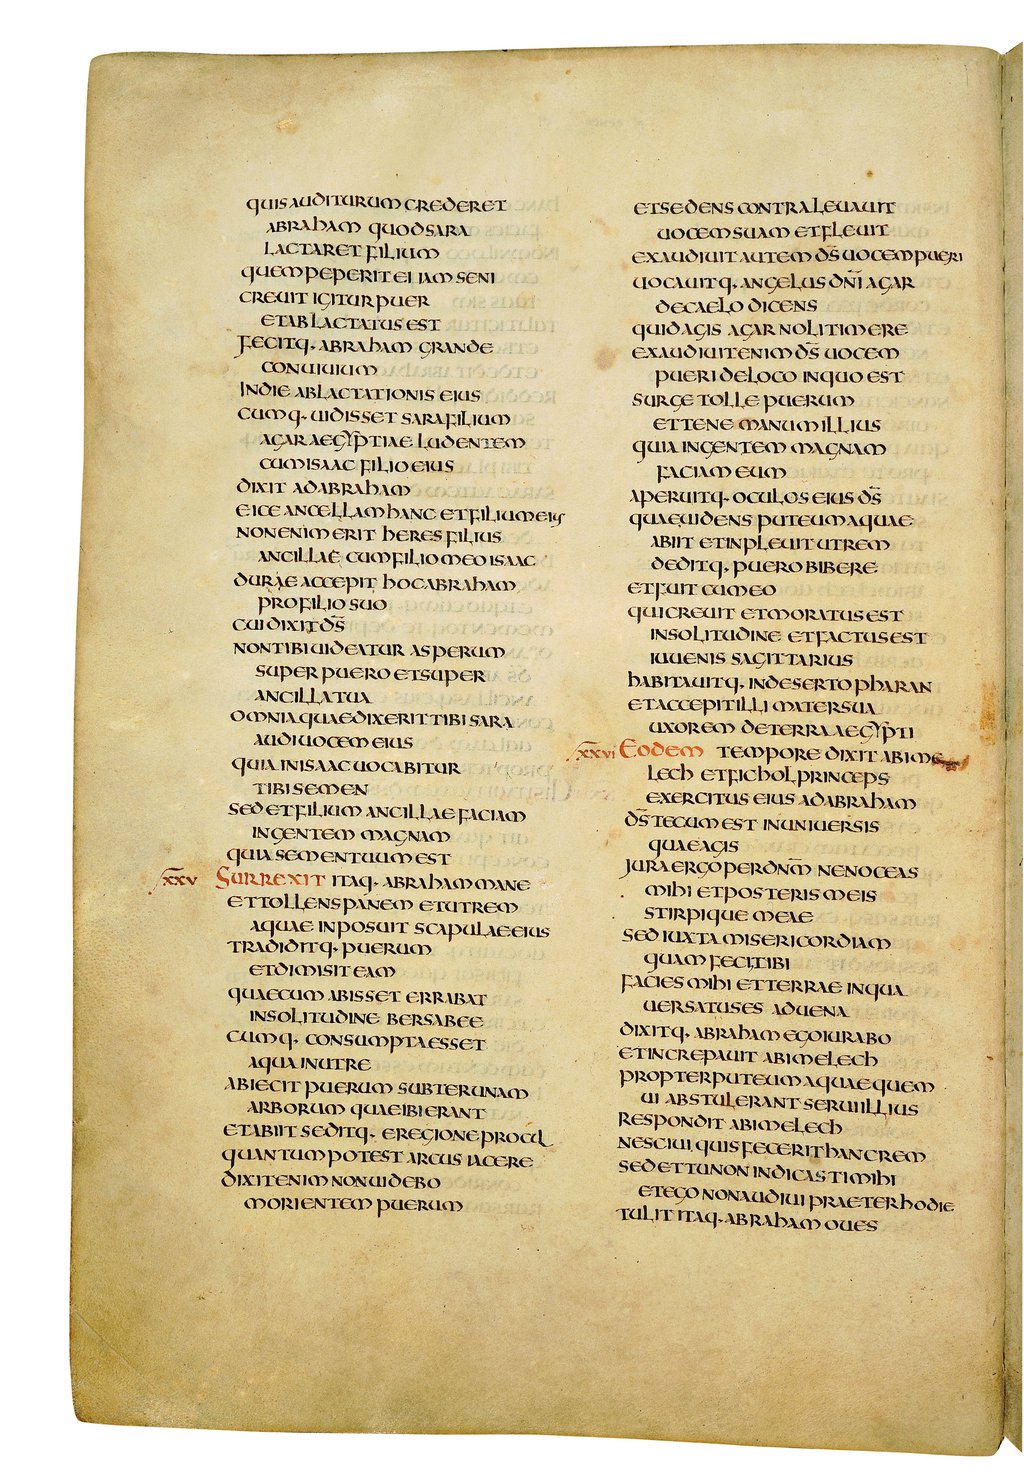 quis auditurum crederet
abraham quod sara
lactaret filium
quem peperit ei iam seni
creuit igitur puer
et ablactatus est
fecitq· abraham grande
conuiuium
in die ablactationis eius
cumq· uidisset sara filium
agar aegyptiae ludentem
cum isaac filio eius
dixit ad abraham
eice ancellam hanc et filium eius
non enim erit heres filius
ancillae cum filio meo isaac
durae accepit hoc abraham
pro filio suo
cui dixit d̅s̅
non tibi uideatur asperum
super puero et super
ancilla tua
omnia quae dixerit tibi sara
audi uocem eius
quia in isaac uocabitur
tibi semen
sed et filium ancillae faciam
in gentem magnam
quia semen tuum est
xxv Surrexit itaq· abraham mane
et tollens panem et utrem
aquae inposuit scapulae eius
tradiditq· puerum
et dimisit eam
quae cum abisset errabat
in solitudine bersabee
cumq· consumpta esset
aqua in utre
abiecit puerum subter unam
arborum quae ibi erant
et abiit seditq· e regione procul
quantum potest arcus iacere
dixit enim non uidebo
morientem puerum
et sedens contra leuauit
uocem suam et fleuit
exaudiuit autem d̅s̅ uocem pueri
uocauitq· angelus dn̅i agar
de caelo dicens
quid agis agar noli timere
exaudiuit enim d̅s̅ uocem
pueri de loco in quo est
surge tolle puerum
et tene manum illius
quia in gentem magnam
faciam eum
aperuitq· oculos eius d̅s̅
quae uidens puteum aquae
abiit et inpleuit utrem
deditq· puero bibere
et fuit cum eo
qui creuit et moratus est
in solitudine et factus est
iuuenis sagittarius
habitauitq· in deserto pharan
et accepit illi mater sua
uxorem de terra aegypti
xxvi Eodem tempore dixit abime
lech et fichol princeps
exercitus eius ad abraham
d̅s̅ tecum est in uniuersis
quae agis
iura ergo per dn̅m ne noceas
mihi et posteris meis
stirpique meae
sed iuxta misericordiam
quam feci tibi
facies mihi et terrae in qua
uersatus es aduena
dixitq· abraham ego iurabo
et increpauit abimelech
propter puteum aquae quem
ui abstulerant serui illius
respondit abimelech
nesciui quis fecerit hanc rem
sed et tu non indicasti mihi
et ego non audiui praeter hodie
tulit itaq· abraham oues